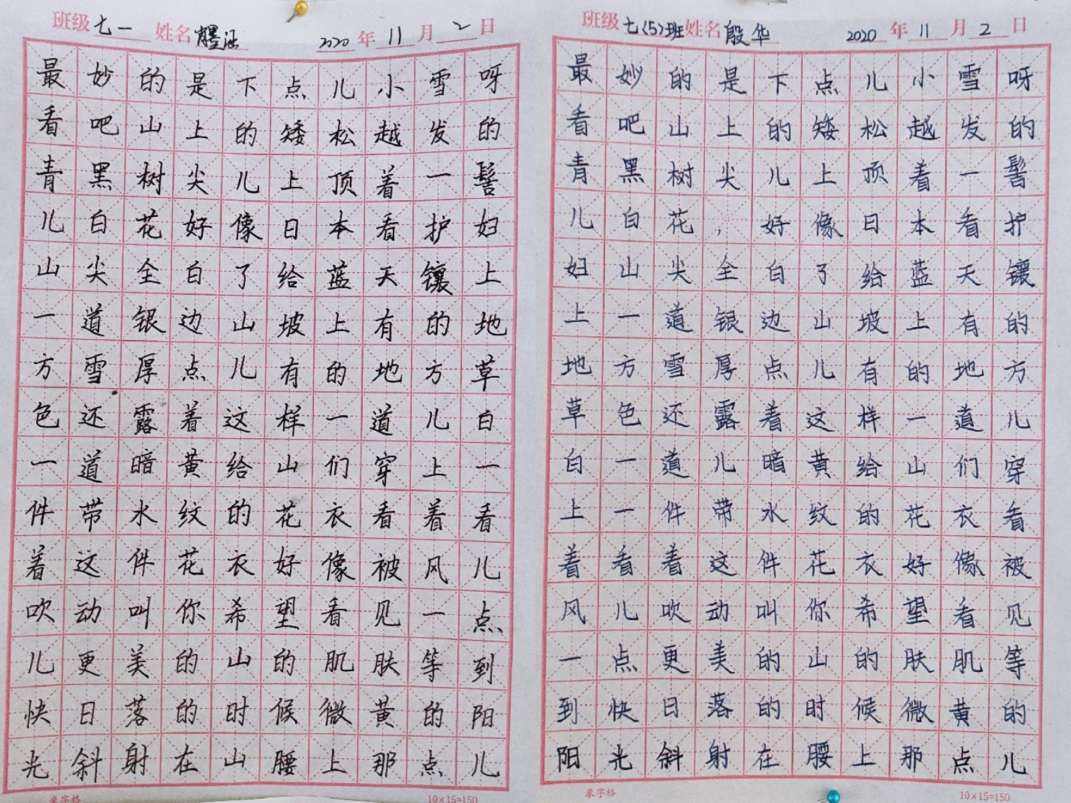 班级 七一 姓名 2020 年 11 月 2 日
最妙的是下点儿小雪呀
看吧山上的矮松越发的
青黑树尖儿上顶着一髻
儿白花好像日本看护妇
山尖全白了给蓝天镶上
一道银边山坡上有的地
方雪厚点儿有的地方草
色还露着这样一道儿白
一道暗黄给山们穿上一
件带水纹的花衣看着看
着这件花衣好像被风儿
吹动叫你希望看见一点
儿更美的山的肌肤等到
快日落的时候微黄的阳
光斜射在山腰上那点儿
米字格 10×15=150
班级 七(5)班 姓名 殷华 2020 年 11 月 2 日
最妙的是下点儿小雪呀
看吧山上的矮松越发的
青黑树尖儿上顶着一髻
儿白花，好像日本看护
妇山尖全白了给蓝天镶
上一道银边山坡上有的
地方雪厚点儿有的地方
草色还露着这样一道儿
白一道儿暗黄给山们穿
上一件带水纹的花衣看
着看着这件花衣好像被
风儿吹动叫你希望看见
一点更美的山的肤肌等
到快日落的时候微黄的
阳光斜射在腰上那点儿
米字格 10×15=150